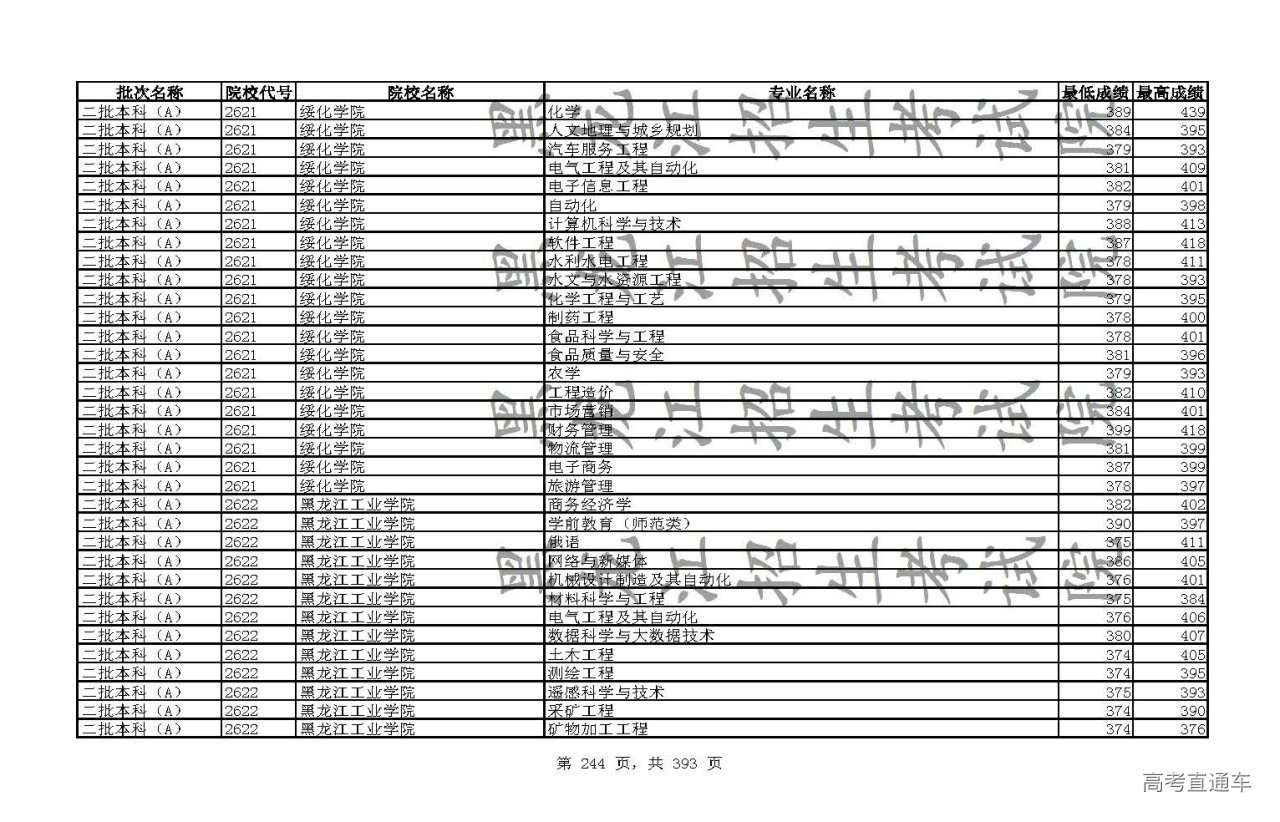 批次名称 院校代号 院校名称 专业名称 最低成绩 最高成绩
二批本科（A） 2621 绥化学院 化学 389 439
二批本科（A） 2621 绥化学院 人文地理与城乡规划 384 395
二批本科（A） 2621 绥化学院 汽车服务工程 379 393
二批本科（A） 2621 绥化学院 电气工程及其自动化 381 409
二批本科（A） 2621 绥化学院 电子信息工程 382 401
二批本科（A） 2621 绥化学院 自动化 379 398
二批本科（A） 2621 绥化学院 计算机科学与技术 388 413
二批本科（A） 2621 绥化学院 软件工程 387 418
二批本科（A） 2621 绥化学院 水利水电工程 378 411
二批本科（A） 2621 绥化学院 水文与水资源工程 378 393
二批本科（A） 2621 绥化学院 化学工程与工艺 379 395
二批本科（A） 2621 绥化学院 制药工程 378 400
二批本科（A） 2621 绥化学院 食品科学与工程 378 401
二批本科（A） 2621 绥化学院 食品质量与安全 381 396
二批本科（A） 2621 绥化学院 农学 379 393
二批本科（A） 2621 绥化学院 工程造价 382 410
二批本科（A） 2621 绥化学院 市场营销 384 401
二批本科（A） 2621 绥化学院 财务管理 399 418
二批本科（A） 2621 绥化学院 物流管理 381 399
二批本科（A） 2621 绥化学院 电子商务 387 399
二批本科（A） 2621 绥化学院 旅游管理 378 397
二批本科（A） 2622 黑龙江工业学院 商务经济学 382 402
二批本科（A） 2622 黑龙江工业学院 学前教育（师范类） 390 397
二批本科（A） 2622 黑龙江工业学院 俄语 375 411
二批本科（A） 2622 黑龙江工业学院 网络与新媒体 386 405
二批本科（A） 2622 黑龙江工业学院 机械设计制造及其自动化 376 401
二批本科（A） 2622 黑龙江工业学院 材料科学与工程 375 384
二批本科（A） 2622 黑龙江工业学院 电气工程及其自动化 376 406
二批本科（A） 2622 黑龙江工业学院 数据科学与大数据技术 380 407
二批本科（A） 2622 黑龙江工业学院 土木工程 374 405
二批本科（A） 2622 黑龙江工业学院 测绘工程 374 395
二批本科（A） 2622 黑龙江工业学院 遥感科学与技术 375 393
二批本科（A） 2622 黑龙江工业学院 采矿工程 374 390
二批本科（A） 2622 黑龙江工业学院 矿物加工工程 374 376
黑龙江招生考试院
黑龙江招生考试院
黑龙江招生考试院
黑龙江招生考试院
第 244 页，共 393 页
高考直通车